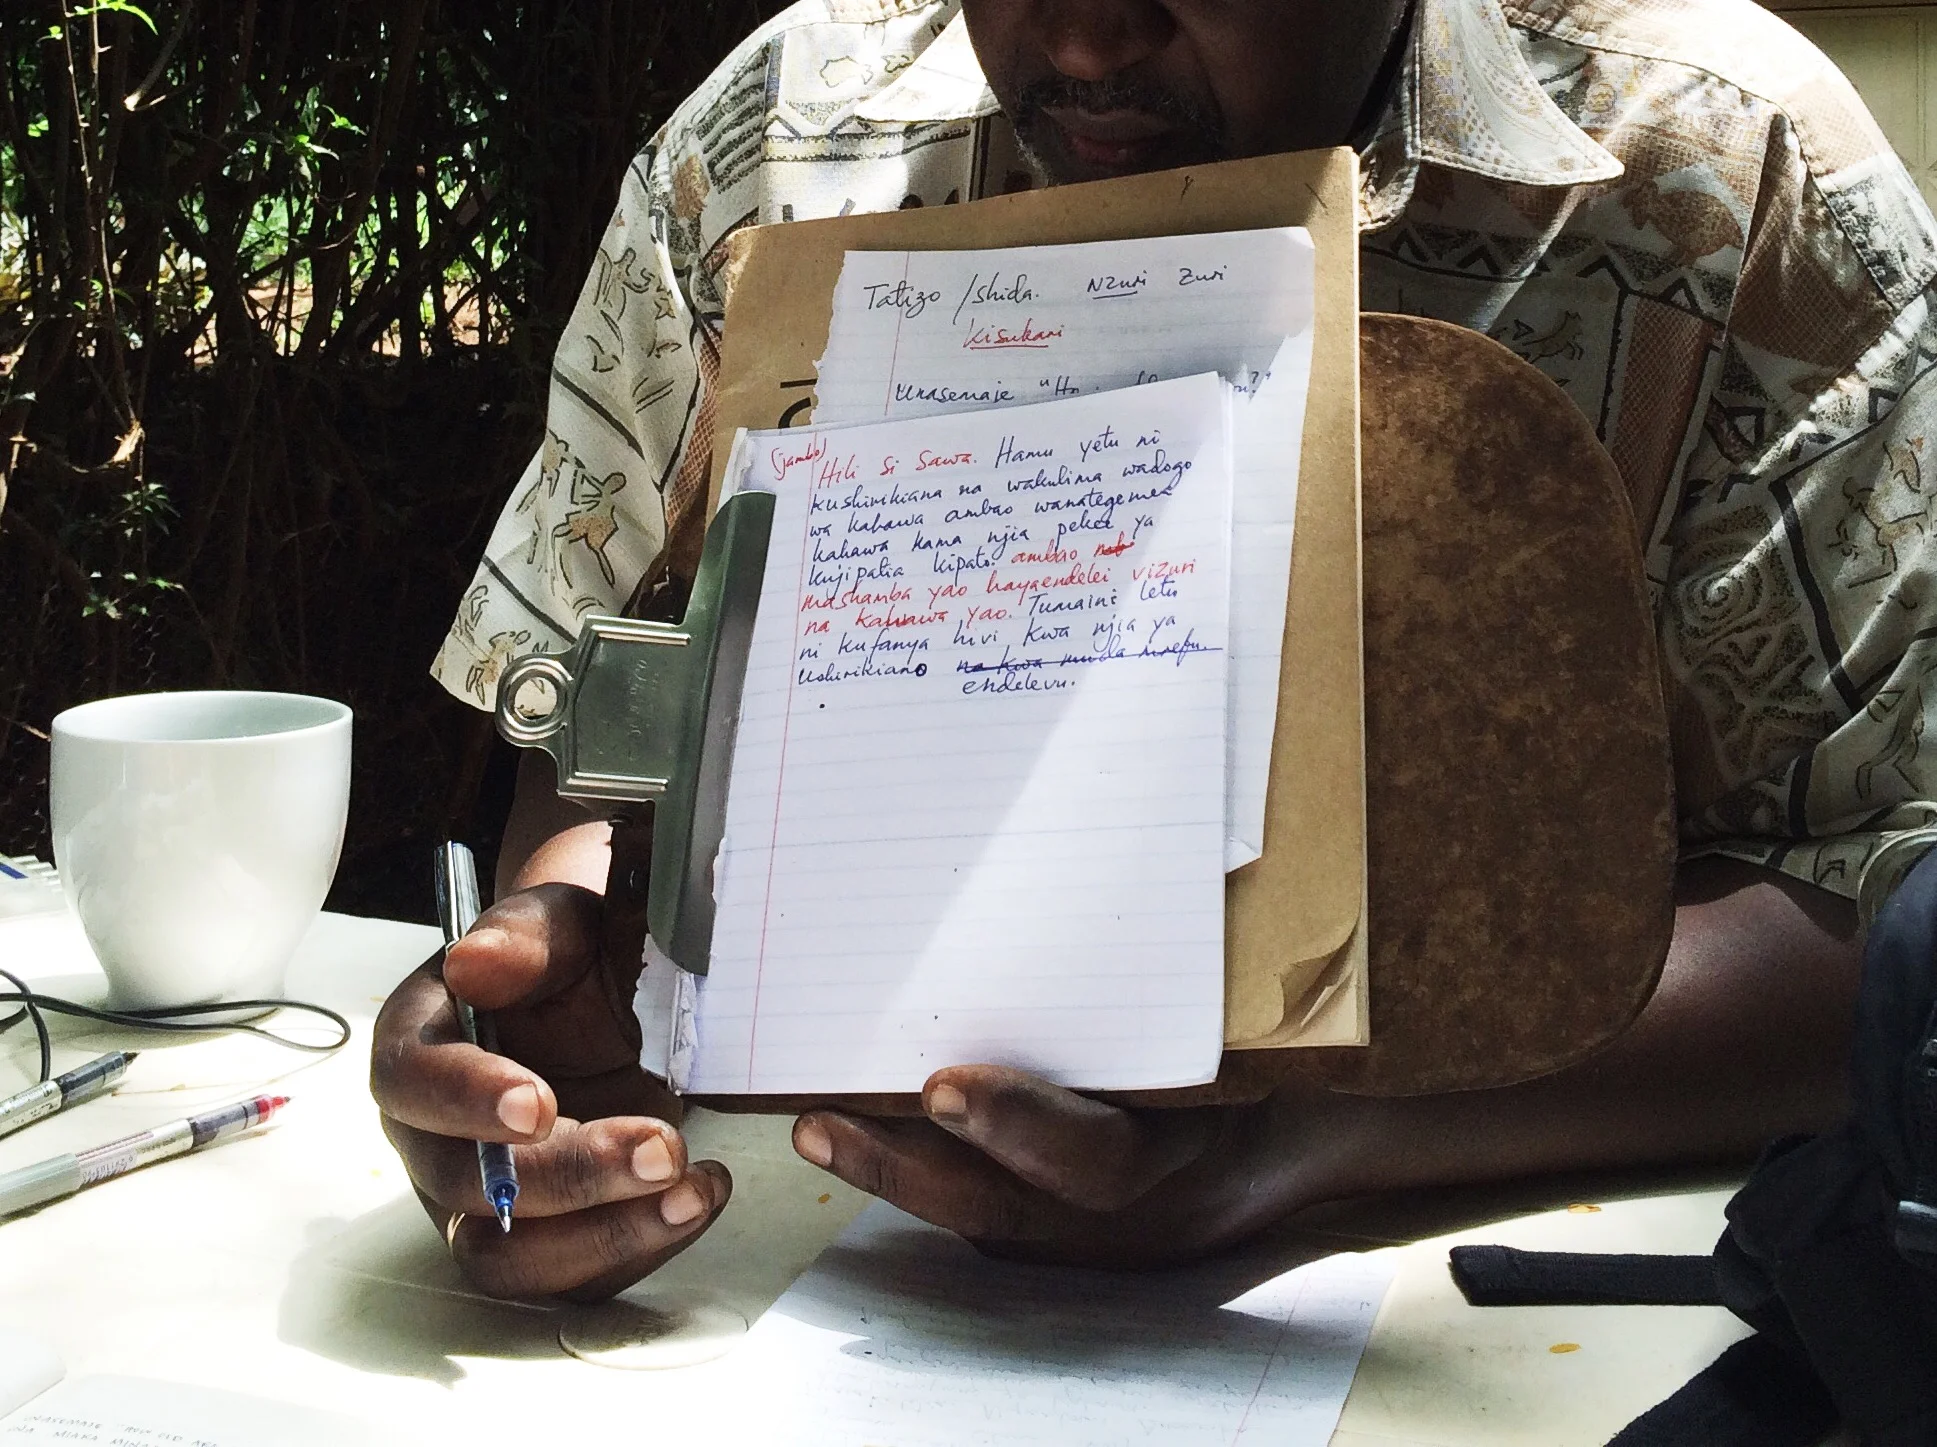 Tatizo /shida. Nzuri zuri
Kisukari
Unasemaje "Ho
(jambo) Hili si sawa. Hamu yetu ni
kushirikiana na wakulima wadogo
wa kahawa ambao wanategemea
kahawa kama njia pekee ya
kujipatia kipato. ambao
mashamba yao hayaendelei vizuri
na kahawa yao. Tumaini letu
ni kufanya hivi kwa njia ya
ushirikiano na kwa muda mrefu.
endelevu.
UNASEMAJE "HOW OLD ARE
UNA MIAKA